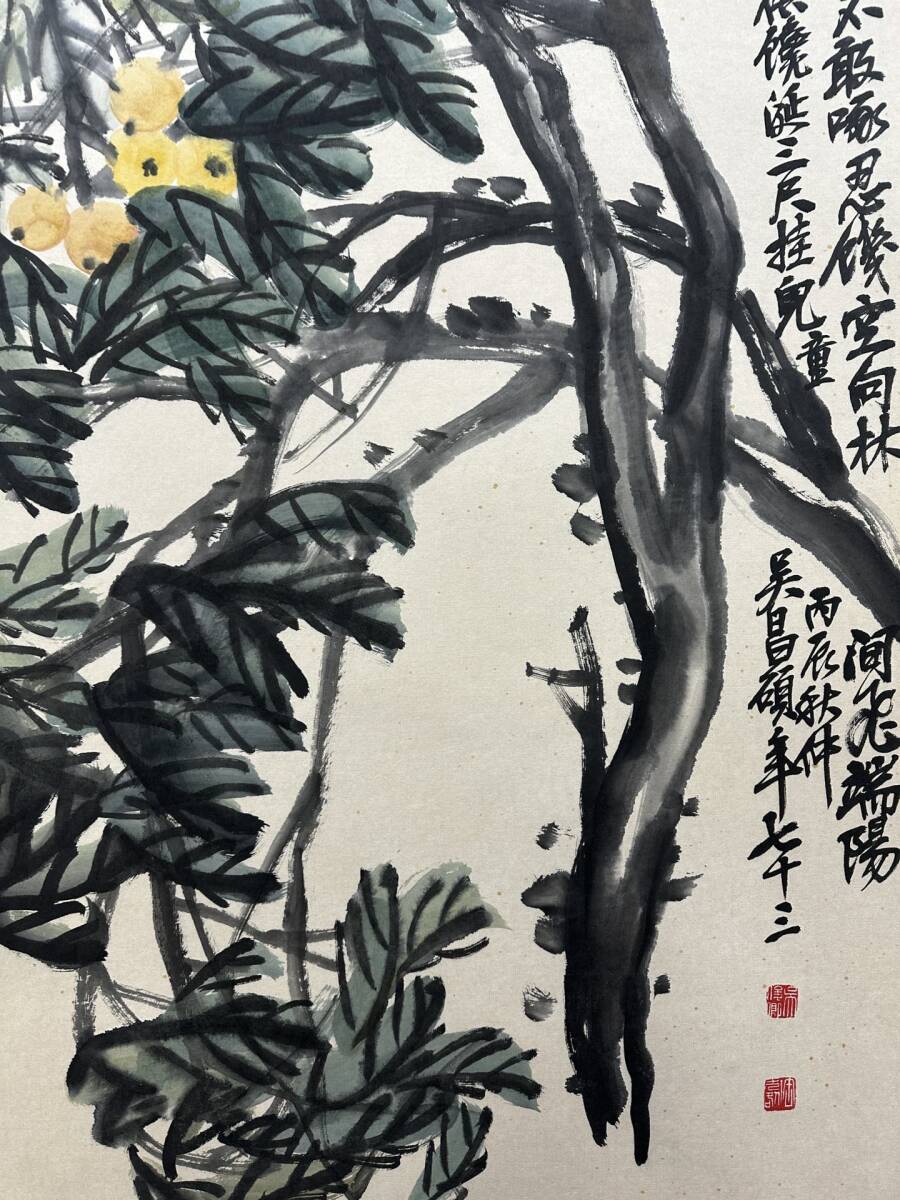 不敢啄忍饑空向林間飛端陽
饞涎三尺挂兒童
丙辰秋仲
吳昌碩年七十三